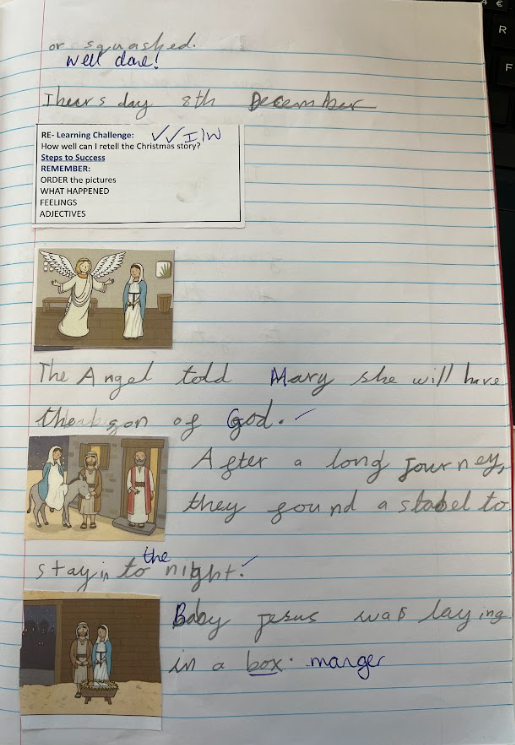 or squashed.
Well done!
Thursday 8th December
RE- Learning Challenge: ✓✓ I/W
How well can I retell the Christmas story?
Steps to Success
REMEMBER:
ORDER the pictures
WHAT HAPPENED
FEELINGS
ADJECTIVES
The Angel told Mary she will have
son of God. ✓
After a long Journey,
they found a stabel to
stay in to the night. ✓
Baby jesus was laying
in a box. manger
R
F